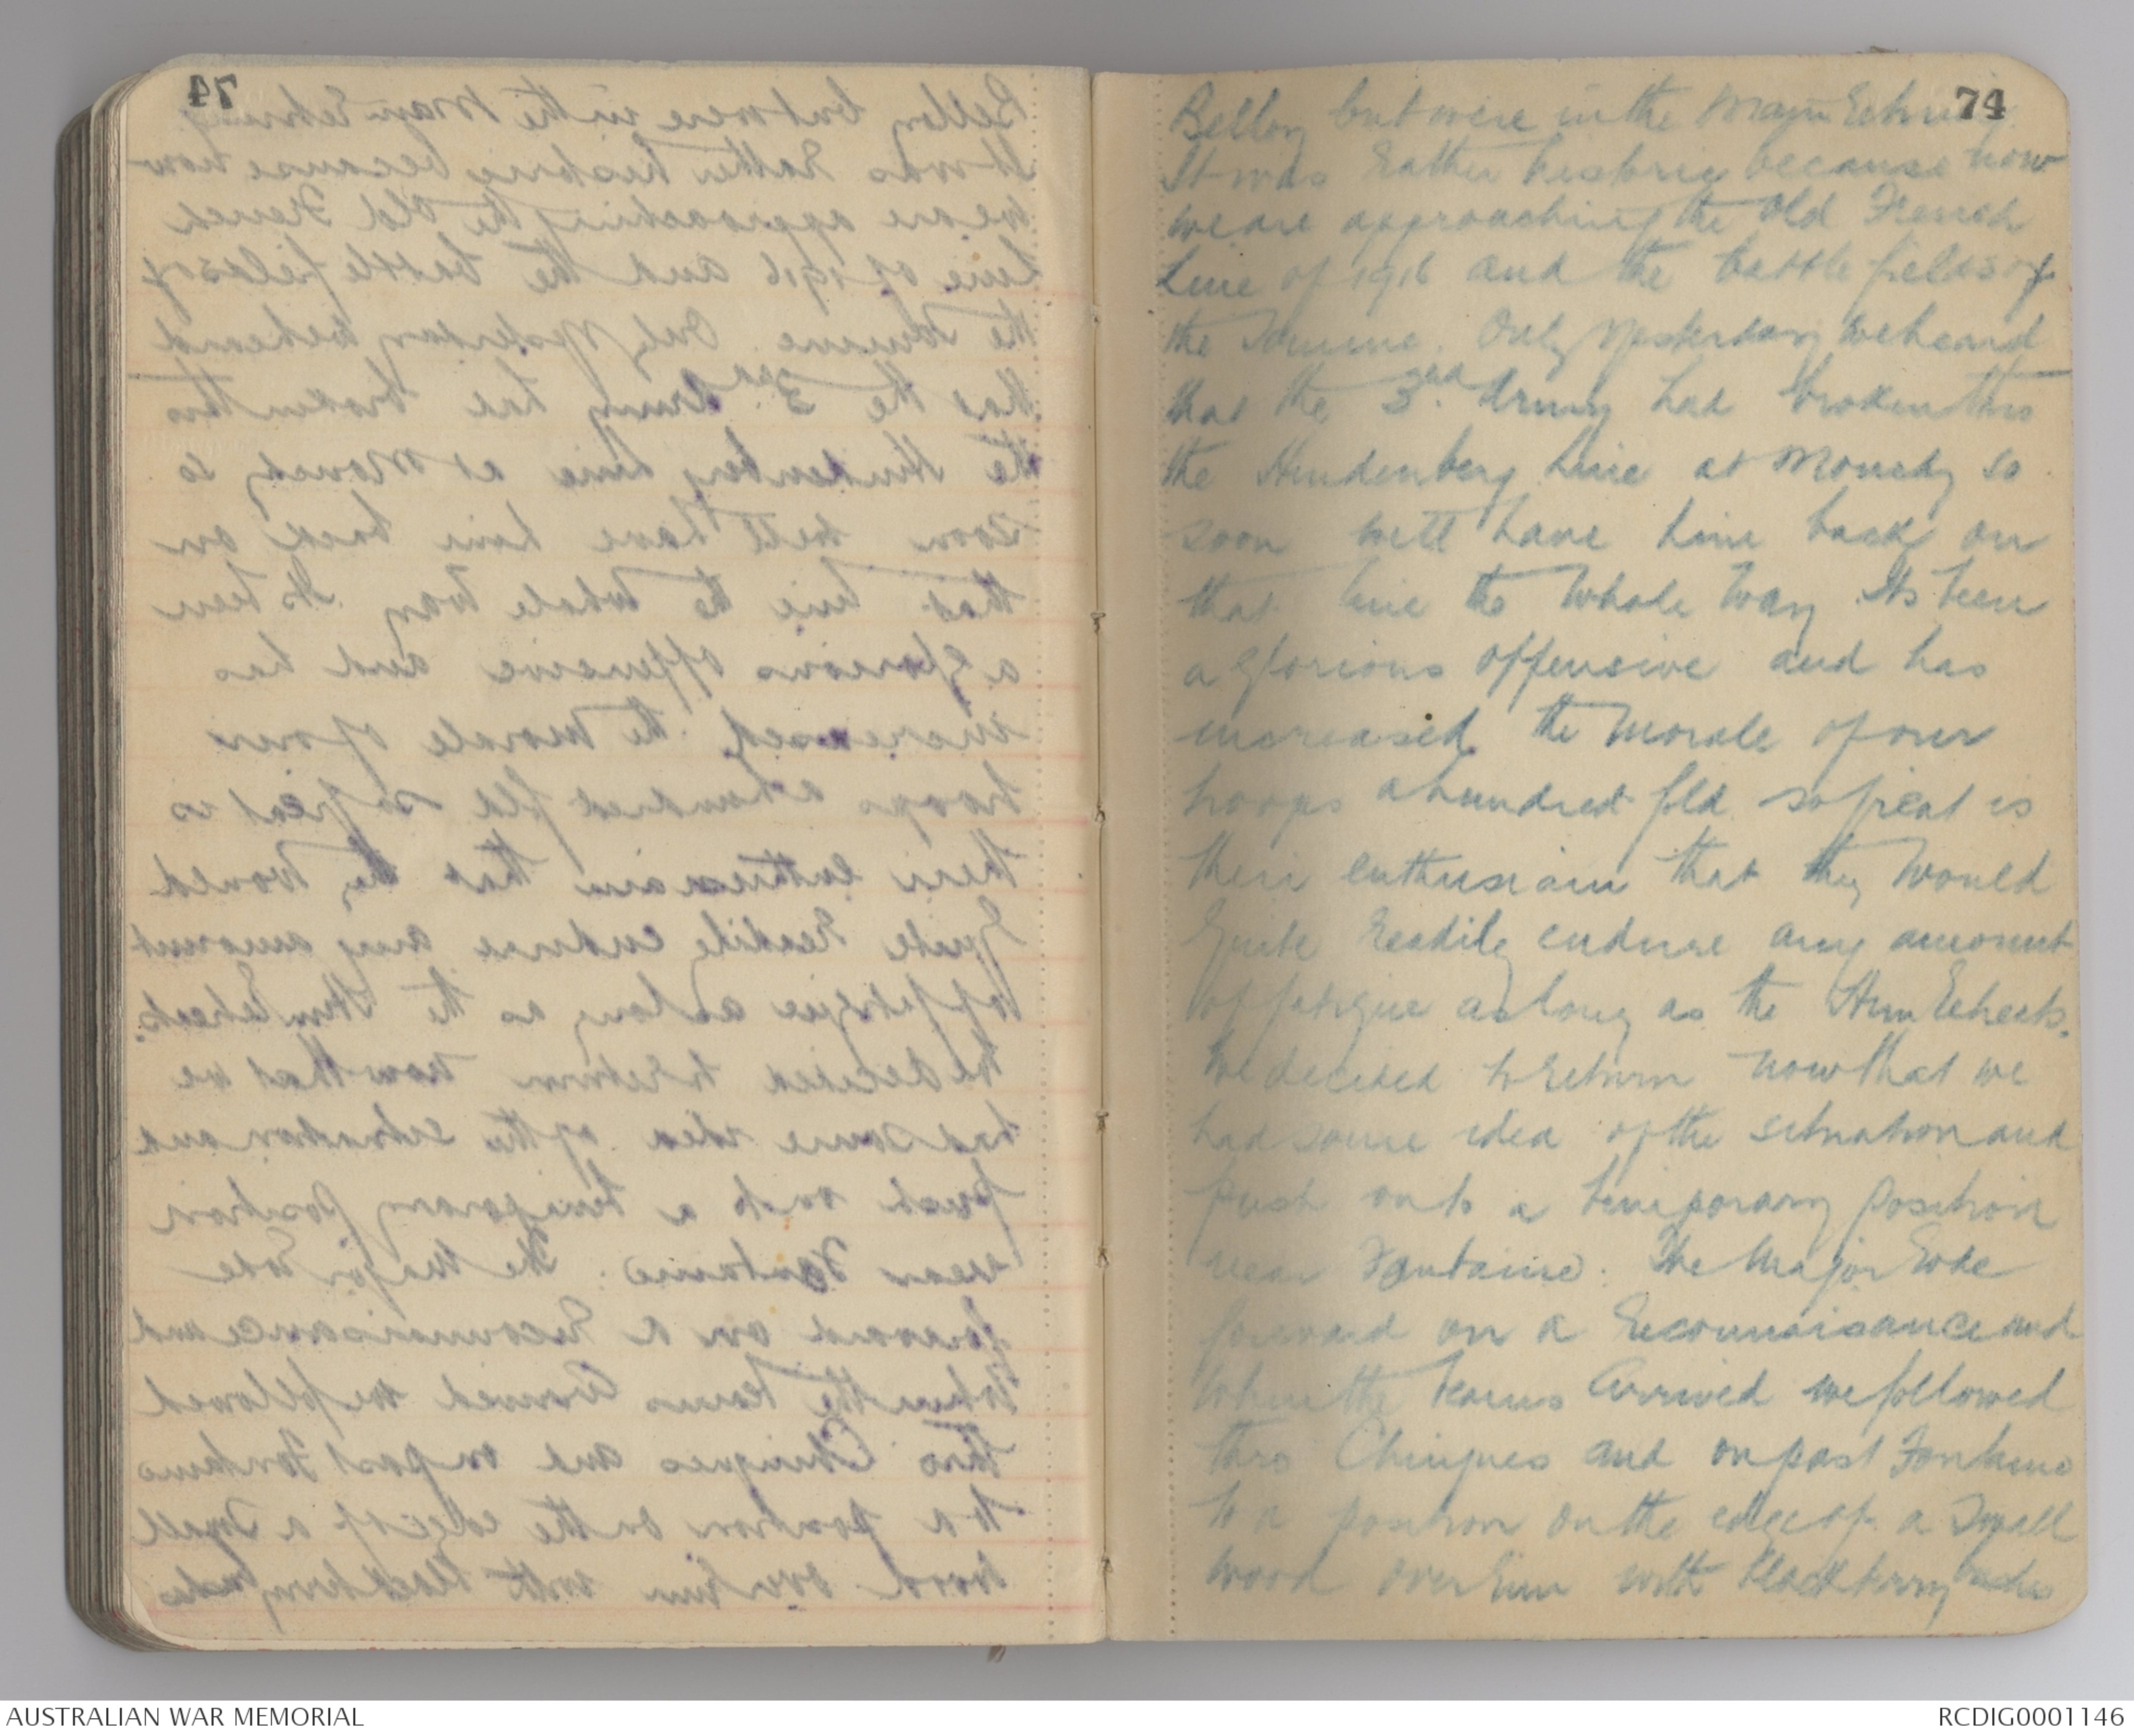 74
Belloy but were in the main Retiring.
It was Rather historic because now
we are approaching the Old French
Line of 1916 and the battle fields of
the Somme. Only Yesterday we heard
that the 3rd Army had broken thro
the Hindenberg Line at Monchy so
soon will have him back on
that line the whole way. Its been
a glorious offensive and has
increased the morale of our
troops a hundred fold so great is
their enthusiasm that they would
Quite Readily endure any amount
of fatigue as long as the Hun Retreats.
We decided to Return now that we
had some idea of the situation and
push onto a temporary position
near Fontaine. The Major Rode
forward on a Reconnaisance and
when the teams arrived we followed
thro Chuignes and on past Fontaine
to a position on the edge of a Small
wood overrun with blackberry bushes
AUSTRALIAN WAR MEMORIAL
RCDIG0001146